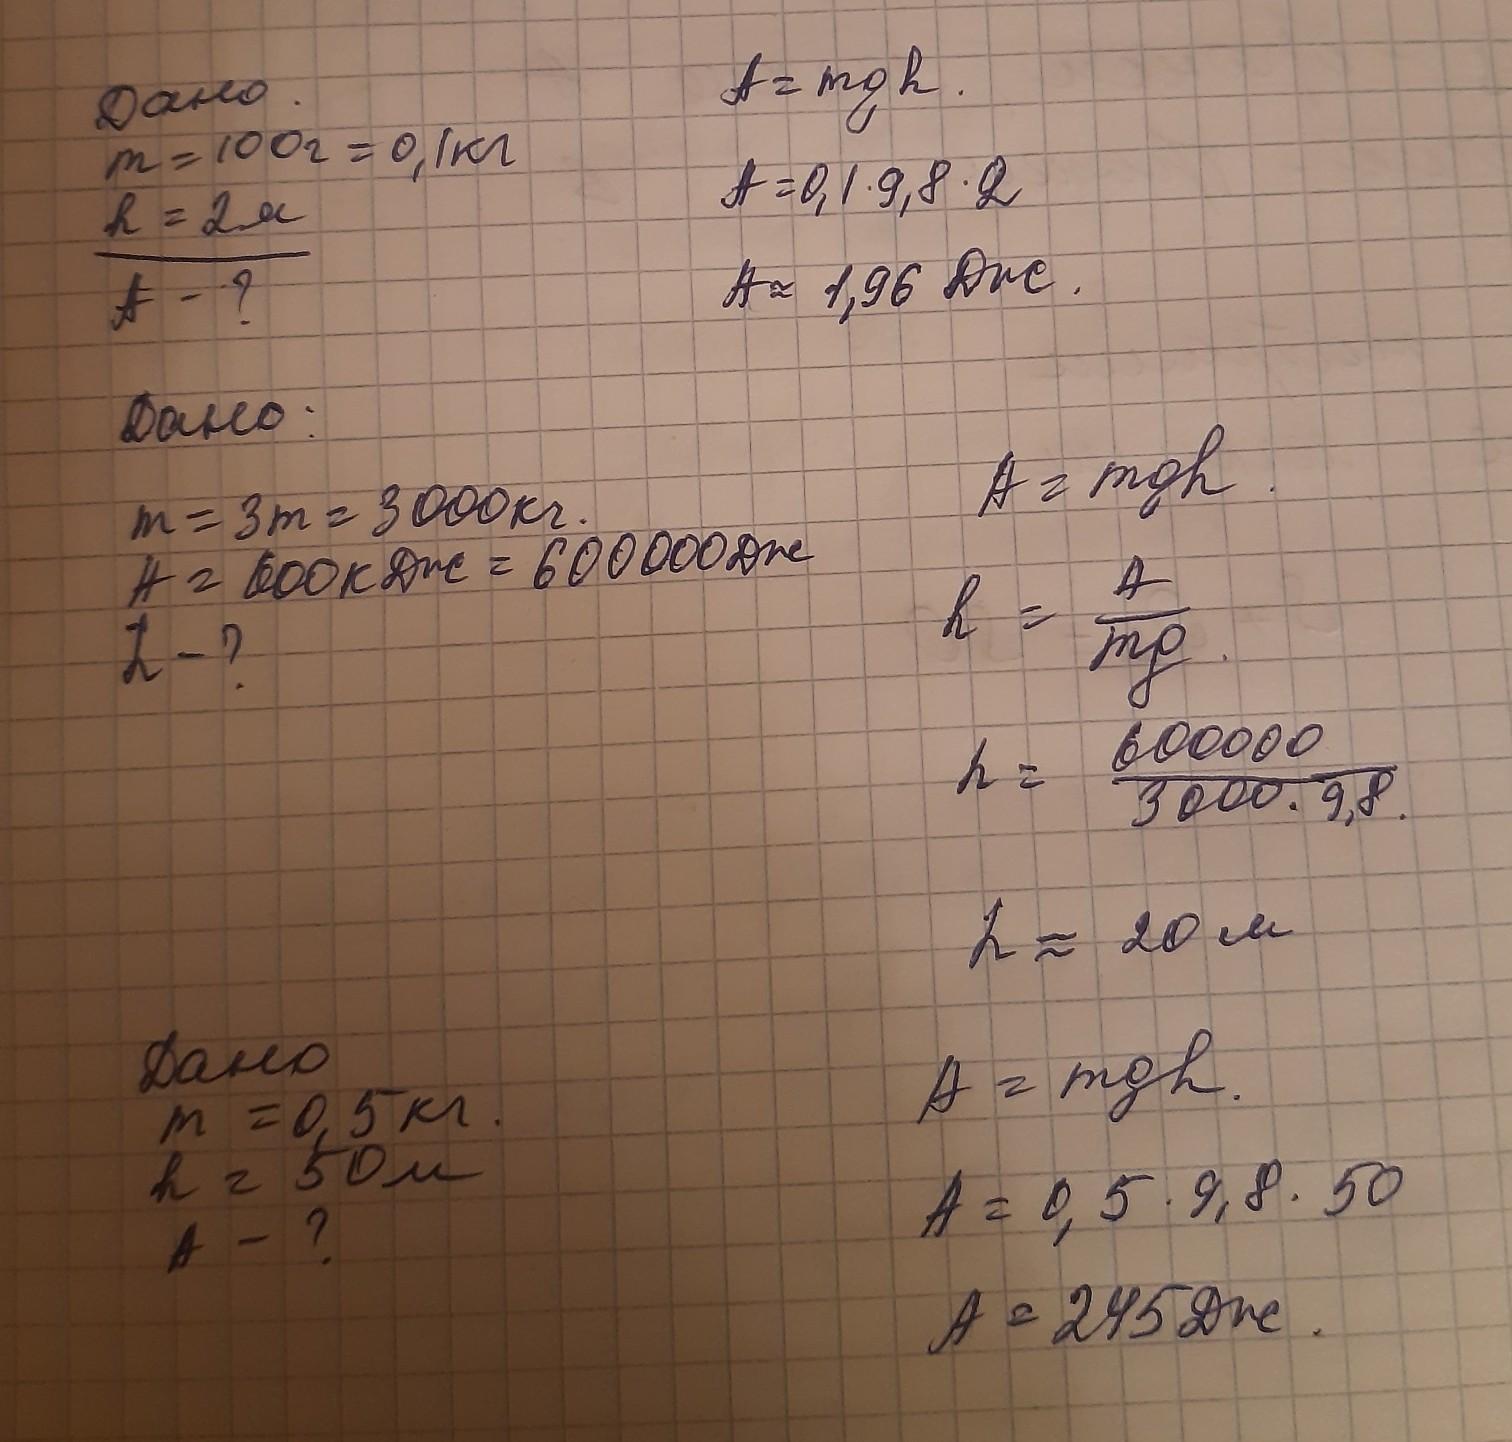 Дано.
m = 100г = 0,1кг
h = 2м
A - ?
A = mgh.
A = 0,1 · 9,8 · 2
A ≈ 1,96 Дж.
Дано:
m = 3т = 3000кг.
A = 600кДж = 600000Дж
h - ?
A = mgh.
h = A
mg.
h = 600000
3000 · 9,8.
h ≈ 20 м
Дано
m = 0,5кг.
h = 50м
A - ?
A = mgh.
A = 0,5 · 9,8 · 50
A = 245Дж.